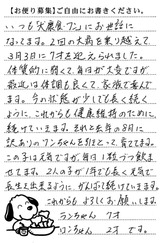 【お便り募集】ご自由にお書きください。
いつも犬康食・ワンにお世話に
なってます。2回の大病を乗り越えて
3月3日に7才を迎えられました。
体質的に弱くて、毎日が大変ですが
最近は体調も良くて、家族で喜んで
ます。今の状態が少しでも長く続く
ように、これからも健康維持のために、
続けていきます。それと去年の8月に
訳ありのワンちゃんを引きとって育ててます。
この子は元気ですが、毎日1粒づつ飲ませ
てます。2人の子が1年でも長く元気で
長生き出来るように、がんばって続けていきます。
これからもよろしくお願いします。
ランちゃん 7才
ロンちゃん 2才 です。